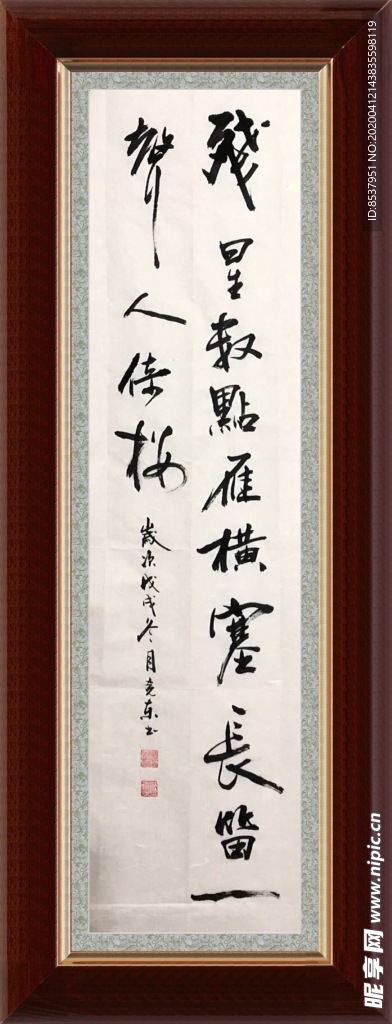 殘星數點雁橫塞長笛一
聲人倚樓
歲次戊戌冬月
ID:8537951 NO:20200412143835598119
昵享网 www.nipic.cn